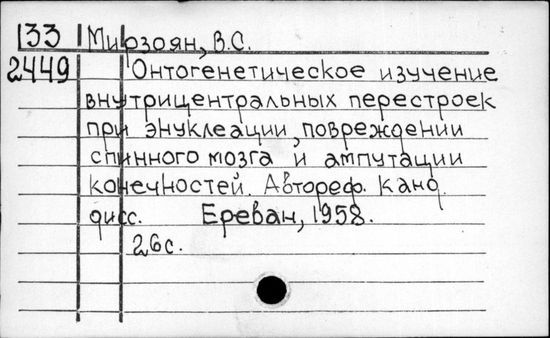 133 Мирзоян, В.С.
2449 Онтогенетическое изучение
внутрицентральных перестроек
при энуклеации, повреждении
спинного мозга и ампутации
конечностей. Автореф. канд.
дисс. Ереван, 1958.
26с.